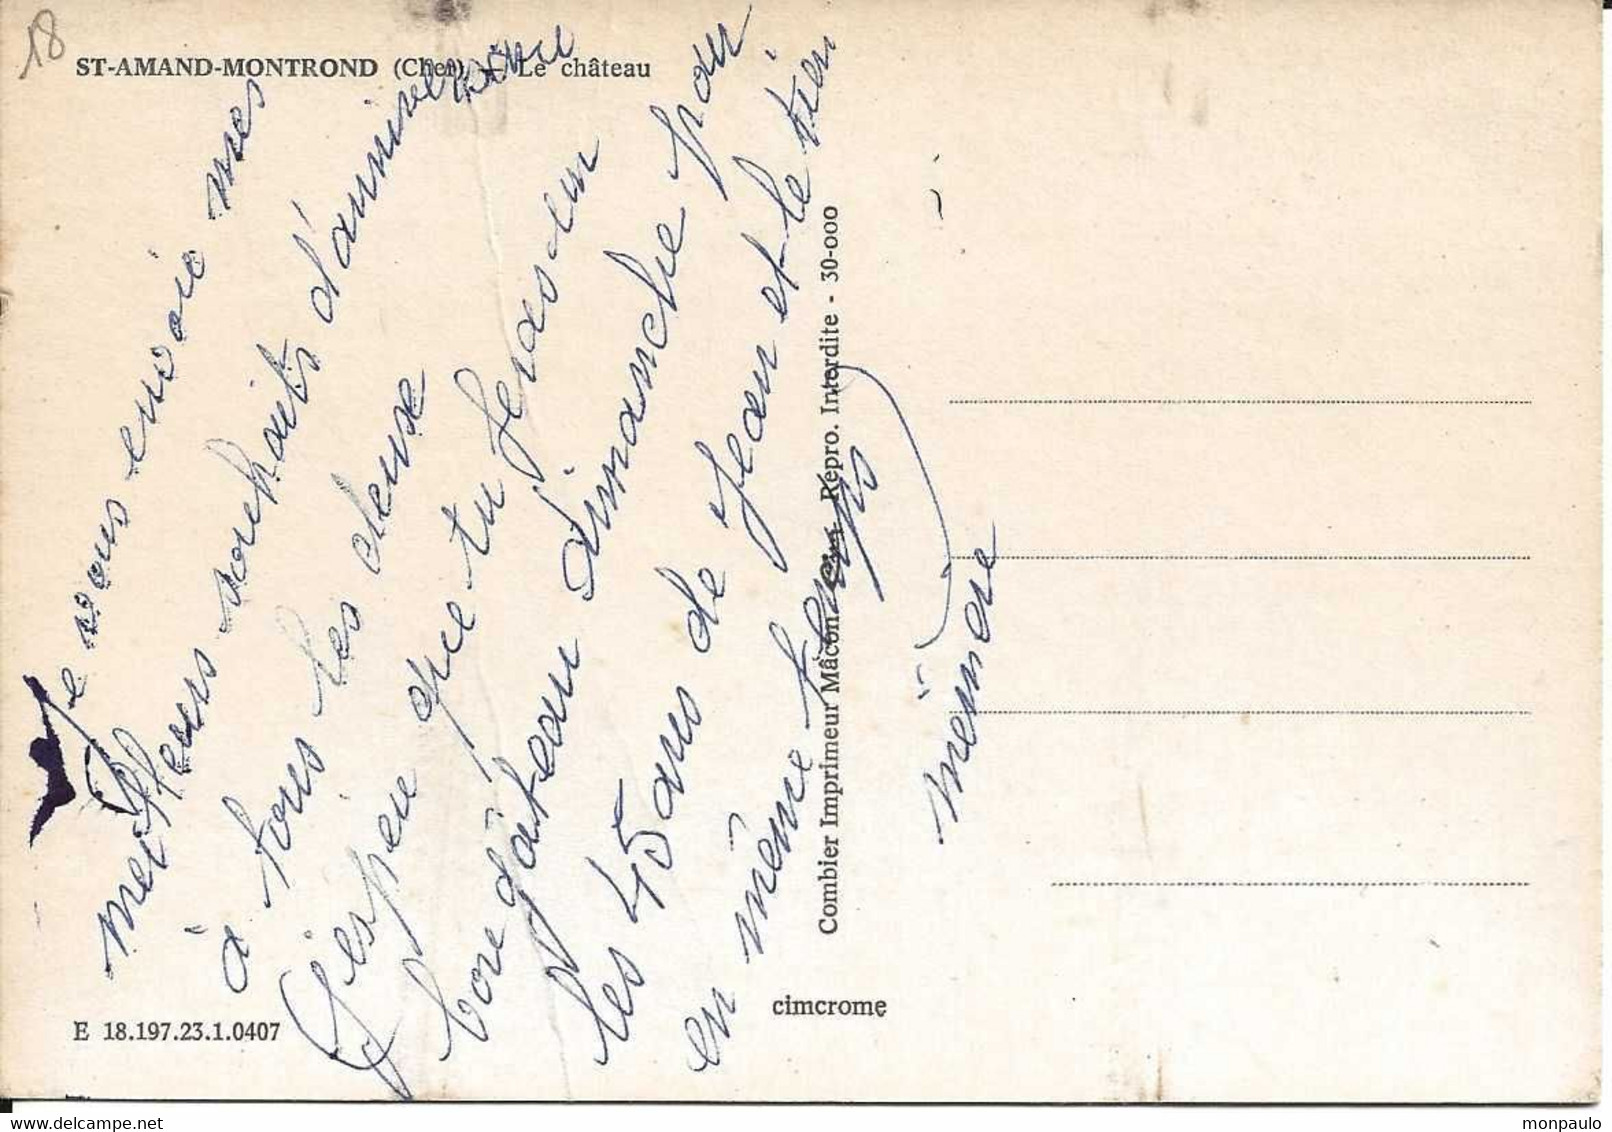 18
ST-AMAND-MONTROND (Cher) — Le château
Je vous envoie mes
meilleurs souhaits d'anniversaire
à tous les deux
J'espère que tu feras un
bon gâteau dimanche pour
les 45 ans de Jean et le tien
en même temps
mémère
Combier Imprimeur Mâcon Répro. Interdite - 30-000
cimcrome
E 18.197.23.1.0407
monpaulo